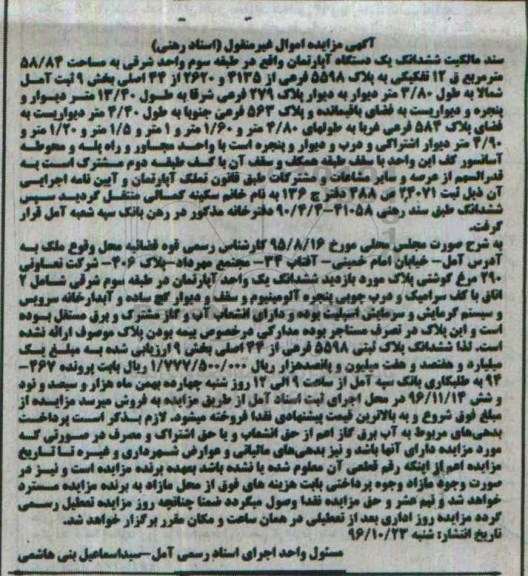 آگهی مزایده اموال غیرمنقول (اسناد رهنی)
سند مالکیت ششدانگ یک دستگاه آپارتمان واقع در طبقه سوم واحد شرقی به مساحت ۵۸/۸۴
مترمربع ق ۱۲ تفکیکی به پلاک ۵۵۹۸ فرعی از ۴۱۳۵ و ۲۶۲۰ از ۴۴ اصلی بخش ۹ ثبت آمل
شمالا به طول ۴/۸۰ متر دیوار به دیوار پلاک ۲۷۹ فرعی شرقا به طول ۱۳/۴۰ متر دیوار و
پنجره و دیواریست به فضای باقیمانده و پلاک ۵۶۳ فرعی جنوبا به طول ۴/۴۰ متر دیواریست به
فضای پلاک ۵۸۴ فرعی غربا به طولهای ۴/۸۰ متر و ۱/۶۰ متر و ۱ متر و ۱/۵ متر و ۱/۲۰ متر و
۴/۹۰ متر دیوار اشتراکی و درب و دیوار و پنجره است با واحد مجاور و راه پله و محوطه
آسانسور کف این واحد با سقف طبقه همکف و سقف آن با کف طبقه دوم مشترک است به
قدرالسهم از عرصه و سایر مشاعات و مشترکات طبق قانون تملک آپارتمان و آیین نامه اجرایی
آن ذیل ثبت ۲۴۰۷۱ ص ۴۸۸ دفتر ج ۱۳۶ به نام خانم سکینه کسائی منتقل گردید سپس
ششدانگ طبق سند رهنی ۴۱۰۵۸-۹۰/۴/۴ دفترخانه مذکور در رهن بانک سپه شعبه آمل قرار
گرفت.
به شرح صورت مجلس محلی مورخ ۹۵/۸/۱۶ کارشناس رسمی قوه قضائیه محل وقوع ملک به
آدرس آمل- خیابان امام خمینی- آفتاب ۳۴- مجتمع مهرداد-پلاک ۴۰۶- شرکت تعاونی
۲۹۰ مرغ گوشتی پلاک مورد بازدید ششدانگ یک واحد آپارتمان در طبقه سوم شرقی شامل ۲
اتاق با کف سرامیک و درب چوبی پنجره آلومینیوم و سقف و دیوار گچ ساده و آبدارخانه سرویس
و سیستم گرمایش و سرمایش اسپلیت بوده و دارای انشعاب آب و گاز مشترک و برق مستقل بوده
است و این پلاک در تصرف مستاجر بوده مدارکی درخصوص بیمه بودن پلاک موصوف ارائه نشده
است. لذا ششدانگ پلاک ثبتی ۵۵۹۸ فرعی از ۴۴ اصلی بخش ۹ ارزیابی شده به مبلغ یک
میلیارد و هفتصد و هفت میلیون و پانصدهزار ریال ۱/۷۷۷/۵۰۰/۰۰۰ ریال بابت پرونده ۴۶۷-
۹۴ به طلبکاری بانک سپه آمل از ساعت ۹ الی ۱۲ روز شنبه چهارده بهمن ماه هزار و سیصد و نود
و شش ۹۶/۱۱/۱۴ در محل اجرای ثبت اسناد آمل از طریق مزایده به فروش میرسد مزایده از
مبلغ فوق شروع و به بالاترین قیمت پیشنهادی نقدا فروخته میشود. لازم بذکر است پرداخت
بدهی‌های مربوط به آب برق گاز اعم از حق انشعاب و یا حق اشتراک و مصرف در صورتی که
مورد مزایده دارای آنها باشد و نیز بدهی‌های مالیاتی و عوارض شهرداری و غیره تا تاریخ
مزایده اعم از اینکه رقم قطعی آن معلوم شده یا نشده باشد بعهده برنده مزایده است و نیز در
صورت وجود مازاد وجوه پرداختی بابت هزینه های فوق از محل مازاد به برنده مزایده مسترد
خواهد شد و نیم عشر و حق مزایده نقدا وصول میگردد ضمنا چنانچه روز مزایده تعطیل رسمی
گردد مزایده روز اداری بعد از تعطیلی در همان ساعت و مکان مقرر برگزار خواهد شد.
تاریخ انتشار: شنبه ۹۶/۱۰/۲۳
مسئول واحد اجرای اسناد رسمی آمل-سیداسماعیل بنی هاشمی